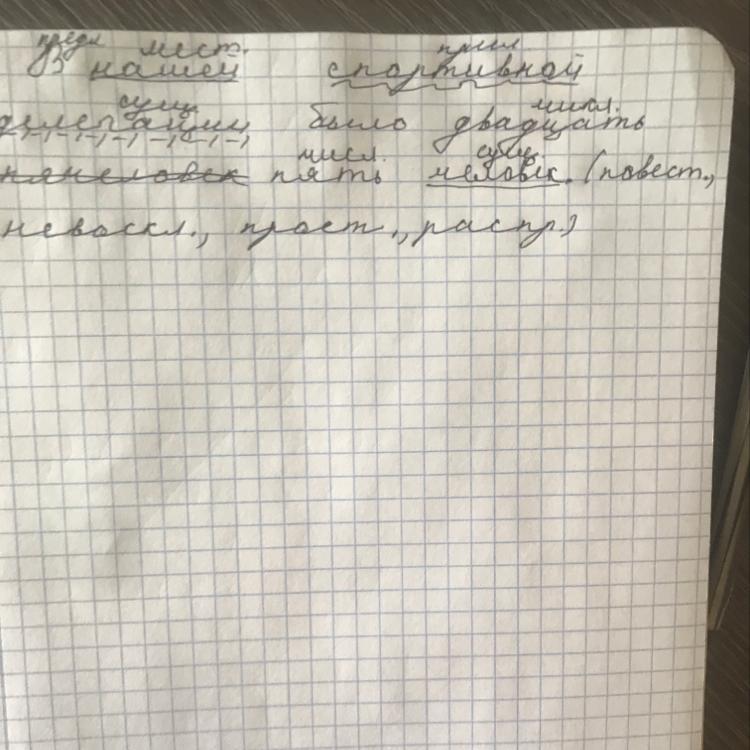 предл мест. прил
В нашей спортивной
сущ. числ.
делегации было двадцать
числ. сущ.
пять человек. (повест.,
невоскл., прост., распр.)